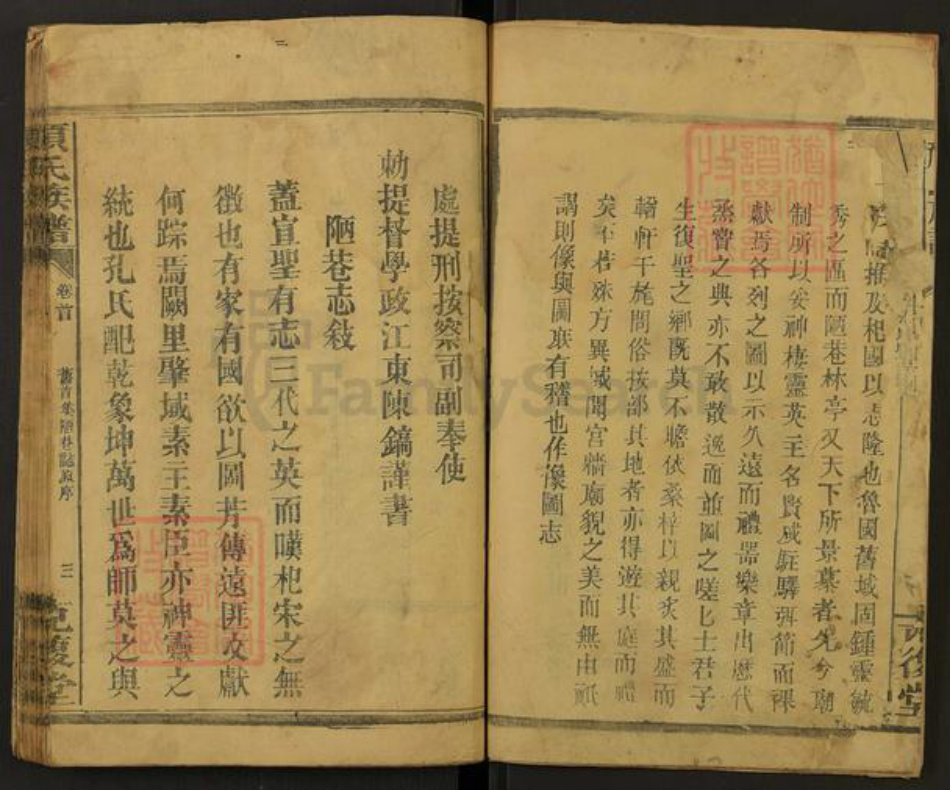 推及杞國以志隆也魯國舊域固鍾靈毓
秀之區而陋巷林亭又天下所景慕者先今廟
制所以妥神棲靈英王名賢咸駐驛弭節而祼
獻焉各列之圖以示久遠而禮器樂章出歷代
蒸嘗之典亦不敢散逸而並圖之嗟乎士君子
生復聖之鄉既莫不瞻依桑梓以親炙其盛而
輶軒干旄問俗按部其地者亦得遊其庭而禮
矣不若殊方異域聞宮牆廟貌之美而無由祇
謁則像與圖聚有稽也作像圖志
處提刑按察司副奉使
勅提督學政江東陳鎬謹書
陋巷志敍
蓋宣聖有志三代之英而嘆杞宋之無
徵也有家有國欲以圖芳傳遠匪文獻
何踪焉闕里肇域素王素臣亦神靈之
統也孔氏配乾象坤萬世爲師莫之與
氏族譜
卷首
舊首集陋巷誌原序
三
復堂
FamilySearch